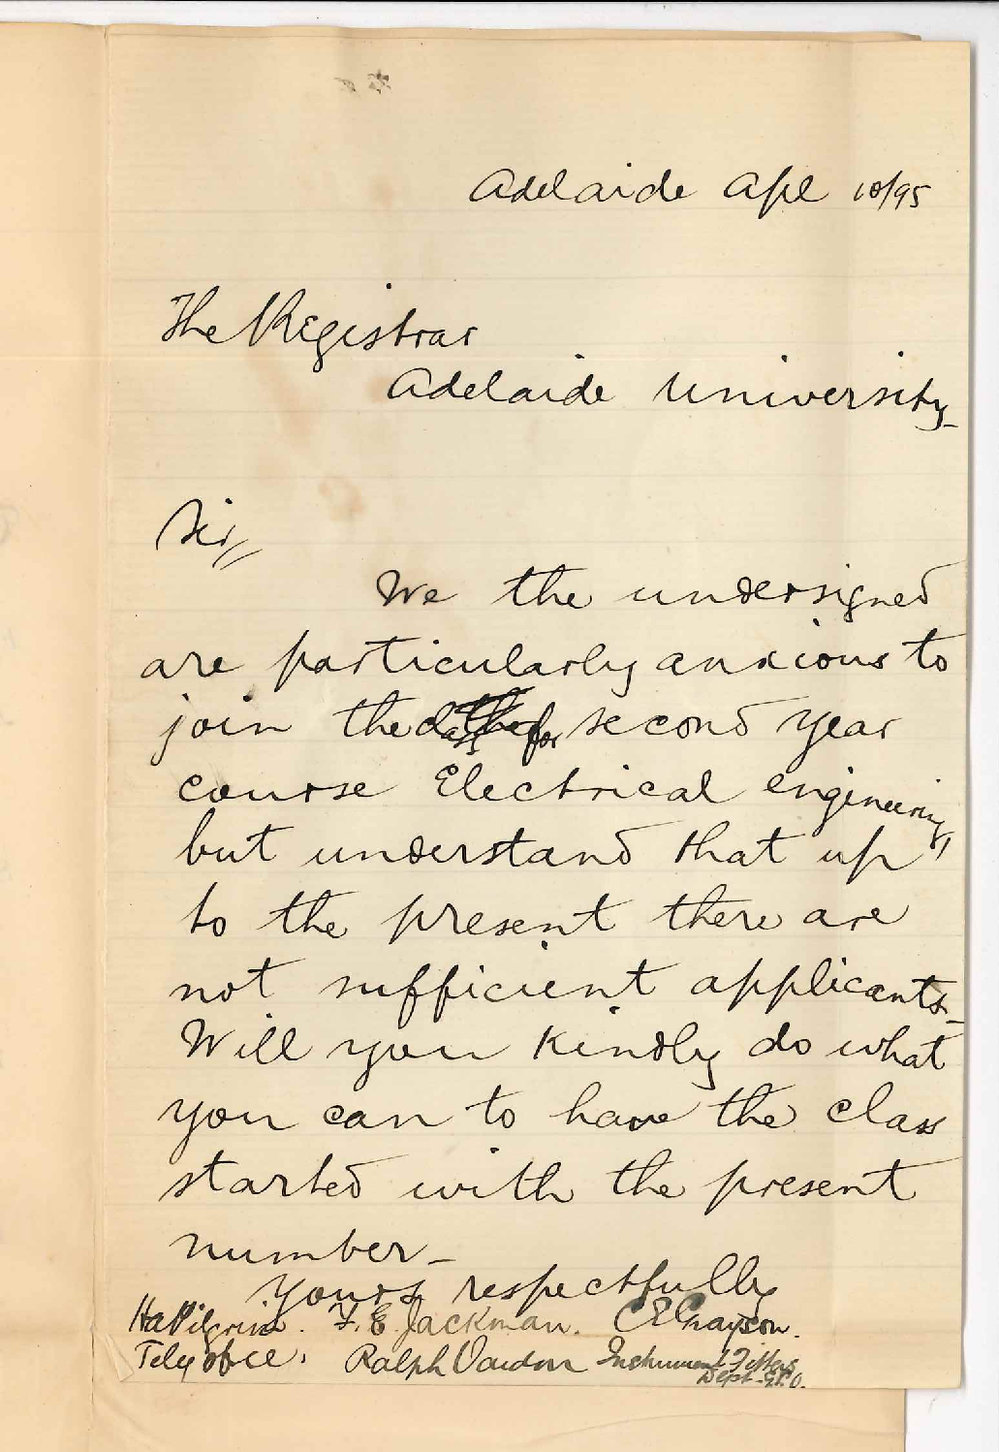 Adelaide Apl 10/95
The Registrar
Adelaide University
Sir
We the undersigned
are particularly anxious to
join the class for second year
course Electrical engineering,
but understand that up
to the present there are
not sufficient applicants
Will you kindly do what
you can to have the class
started with the present
number
Yours respectfully
Ha Pilgrim. F. E Jackman. C E Grayson.
Tely office. Ralph Vardon Instrument Fitters
Dept. G.P.O.